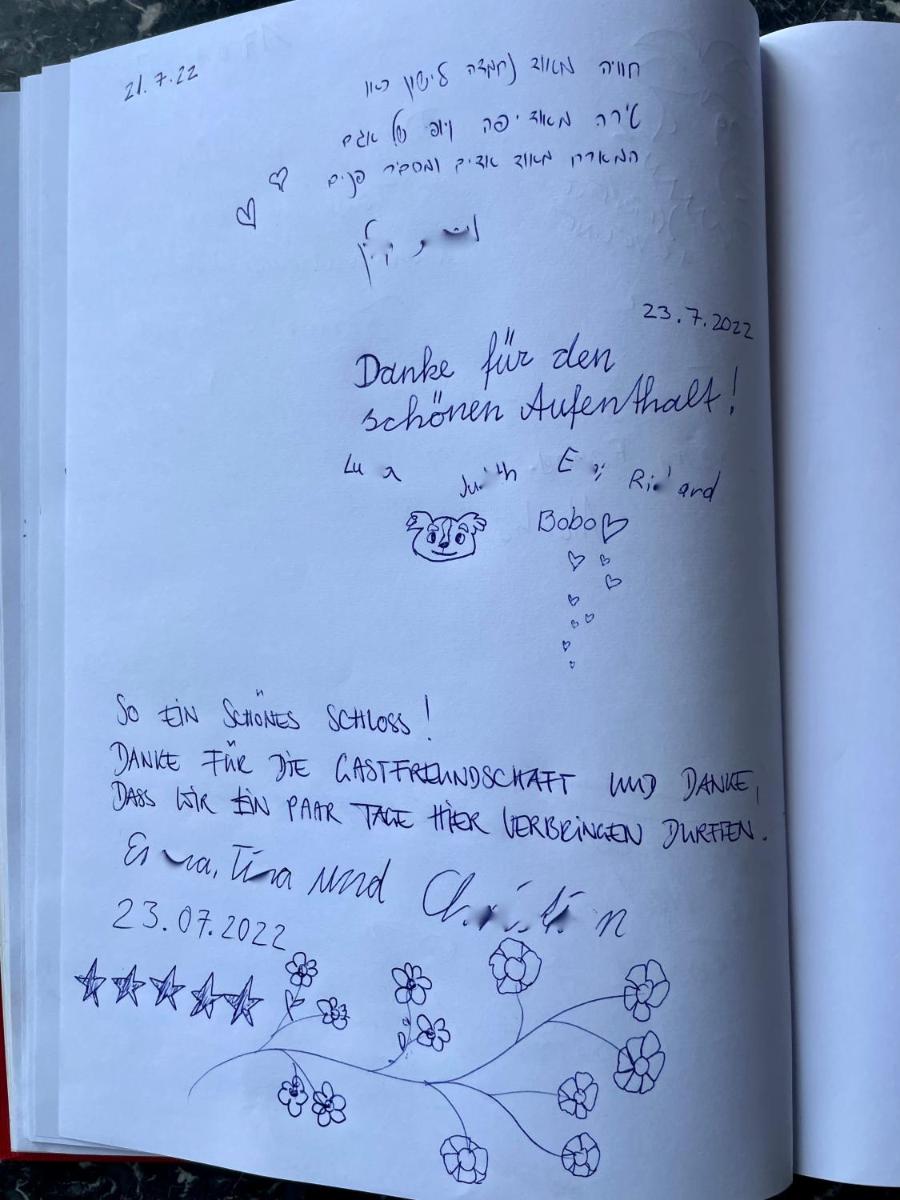 21.7.22
חוויה מאווד נחמדה לישון כאן
טירה מאוד יפה נוף של אגם
המארח מאוד אדיב ומסביר פנים
23.7.2022
Danke für den
schönen Aufenthalt!
Bobo
SO EIN SCHÖNES SCHLOSS!
DANKE FÜR DIE GASTFREUNDSCHAFT UND DANKE,
DASS WIR EIN PAAR TAGE HIER VERBRINGEN DURFTEN.
und
23.07.2022